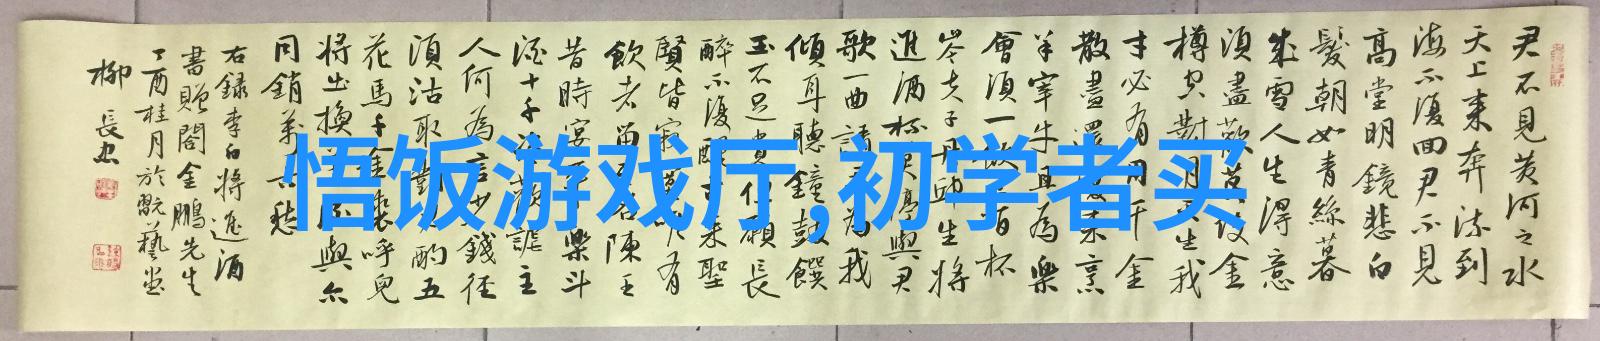 君不見黄河之水
天上来奔流到
海不復回君不見
高堂明鏡悲白
髮朝如青絲暮
成雪人生得意
須盡歡莫使金
樽空對月天生我
才必有用千金
散盡還復来烹
羊宰牛且為樂
會須一飲三百杯
岑夫子丹丘生將
進酒杯莫停與君
歌一曲請君為我
傾耳聽鐘鼓饌
玉不足貴但願長
醉不復醒古来聖
賢皆寂寞唯有
飲者留其名陳王
昔時宴平樂斗
酒十千恣歡謔主
人何為言少錢径
須沽取對君酌五
花馬千金裘呼兒
將出換美酒與尔
同銷萬古愁
右録李白將進酒
書贈閻金鵬先生
丁酉桂月於翫藝堂
柳長忠
悟饭游戏厅,初学者买